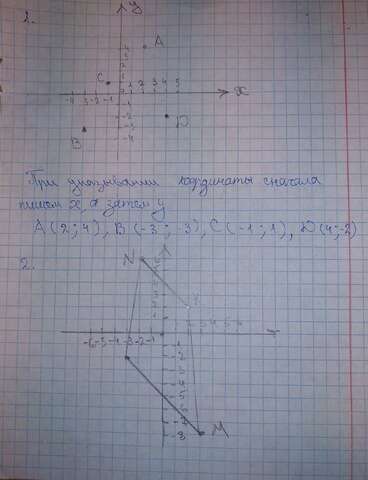 1.
y
A
C
-4 -3 -2 -1 1 2 3 4 5 x
-1
-2
-3
-4
B
D
При указывании координаты сначала
пишем x, а затем y
A(2;4), B(-3;-3), C(-1;1), D(4;-2)
2.
N
-6 -5 -4 -3 -2 -1
-1
-2
-3
-4
-5
-6
-7
-8
M